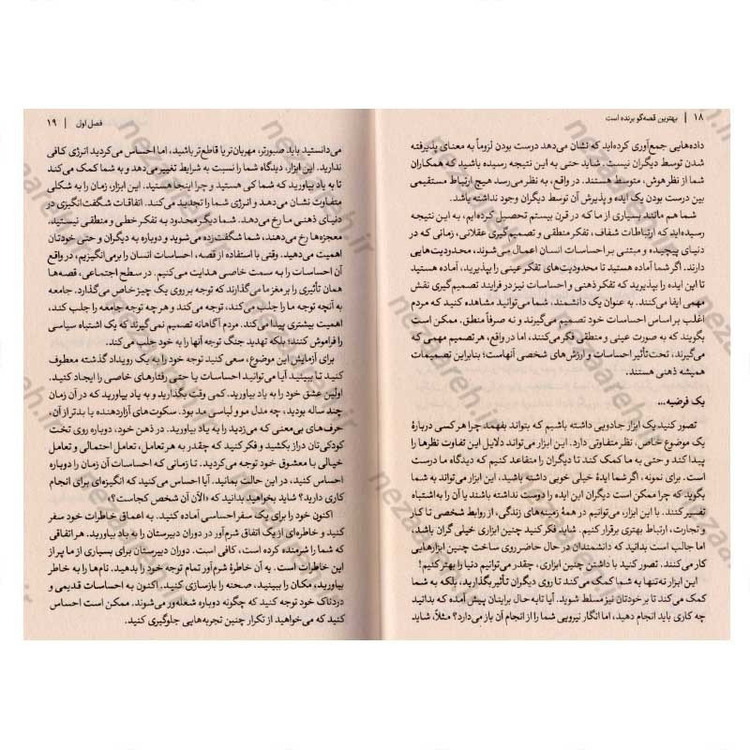 ۱۸ | بهترین قصه‌گو برنده است
داده‌هایی جمع‌آوری کرده‌اید که نشان می‌دهد درست بودن لزوماً به معنای پذیرفته
شدن توسط دیگران نیست. شاید حتی به این نتیجه رسیده باشید که همکاران
شما از نظر هوش، متوسط هستند. در واقع، به نظر می‌رسد هیچ ارتباط مستقیمی
بین درست بودن یک ایده و پذیرش آن توسط دیگران وجود نداشته باشد.
شما هم مانند بسیاری از ما که در قرن بیستم تحصیل کرده‌ایم، به این نتیجه
رسیده‌اید که ارتباطات شفاف، تفکر منطقی و تصمیم‌گیری عقلانی، زمانی که در
دنیای پیچیده و مبتنی بر احساسات انسان اعمال می‌شوند، محدودیت‌هایی
دارند. اگر شما آماده هستید تا محدودیت‌های تفکر عینی را بپذیرید، آماده هستید
تا این ایده را بپذیرید که تفکر ذهنی و احساسات نیز در فرایند تصمیم‌گیری نقش
مهمی ایفا می‌کنند. به عنوان یک دانشمند، شما می‌توانید مشاهده کنید که مردم
اغلب بر اساس احساسات خود تصمیم می‌گیرند و نه صرفاً منطق. ممکن است
بگویند که به صورت عینی و منطقی فکر می‌کنند، اما در واقع، هر تصمیم مهمی که
می‌گیرند، تحت‌تأثیر احساسات و ارزش‌های شخصی آنهاست؛ بنابراین تصمیمات
همیشه ذهنی هستند.
یک فرضیه...
تصور کنید یک ابزار جادویی داشته باشیم که بتواند بفهمد چرا هر کسی درباره‌ٔ
یک موضوع خاص، نظر متفاوتی دارد. این ابزار می‌تواند دلایل این تفاوت نظرها را
پیدا کند و حتی به ما کمک کند تا دیگران را متقاعد کنیم که دیدگاه ما درست
است. برای نمونه، اگر شما ایده‌ٔ خیلی خوبی داشته باشید، این ابزار می‌تواند به شما
بگوید که چرا ممکن است دیگران این ایده را دوست نداشته باشند یا آن را به‌اشتباه
تفسیر کنند. با این ابزار، می‌توانیم در همه‌ٔ زمینه‌های زندگی، از روابط شخصی تا کار
و تجارت، ارتباط بهتری برقرار کنیم. شاید فکر کنید چنین ابزاری خیلی گران باشد،
اما جالب است بدانید که دانشمندان در حال حاضر روی ساخت چنین ابزارهایی
کار می‌کنند. تصور کنید با داشتن چنین ابزاری، چقدر می‌توانیم دنیا را بهتر کنیم!
این ابزار نه‌تنها به شما کمک می‌کند تا روی دیگران تأثیر بگذارید، بلکه به شما
کمک می‌کند تا بر خودتان نیز مسلط شوید. آیا تا به حال برایتان پیش آمده که بدانید
چه کاری باید انجام دهید، اما انگار نیرویی شما را از انجام آن باز می‌دارد؟ مثلاً، شاید
فصل اول | ۱۹
می‌دانستید باید صبورتر، مهربان‌تر یا قاطع‌تر باشید، اما احساس می‌کردید انرژی کافی
ندارید. این ابزار، دیدگاه شما را نسبت به شرایط تغییر می‌دهد و به شما کمک می‌کند
تا به یاد بیاورید که شما کی هستید و چرا اینجا هستید. این ابزار، زمان را به شکلی
متفاوت نشان می‌دهد و انرژی شما را تجدید می‌کند. اتفاقات شگفت‌انگیزی در
دنیای ذهنی ما رخ می‌دهد. شما دیگر محدود به تفکر خطی و منطقی نیستید.
معجزه‌ها رخ می‌دهند، شما شگفت‌زده می‌شوید و دوباره به دیگران و حتی خودتان
اهمیت می‌دهید. وقتی با استفاده از قصه، احساسات انسان را برمی‌انگیزیم، در واقع
آن احساسات را به سمت خاصی هدایت می‌کنیم. در سطح اجتماعی، قصه‌ها
همان تأثیری را بر مغز ما می‌گذارند که توجه بر روی یک چیز خاص می‌گذارد. جامعه
به آنچه توجه ما را جلب می‌کند، توجه می‌کند و هر چه توجه جامعه را جلب کند،
اهمیت بیشتری پیدا می‌کند. مردم آگاهانه تصمیم نمی‌گیرند که یک اشتباه سیاسی
را فراموش کنند؛ بلکه تهدید جنگ توجه آنها را به خود جلب می‌کند.
برای آزمایش این موضوع، سعی کنید توجه خود را به یک رویداد گذشته معطوف
کنید تا ببینید آیا می‌توانید احساسات یا حتی رفتارهای خاصی را ایجاد کنید.
اولین عشق خود را به یاد بیاورید. کمی وقت بگذارید و به یاد بیاورید که در آن زمان
چند ساله بودید، چه مدل مو و لباسی مد بود. سکوت‌های آزاردهنده یا بدتر از آن،
حرف‌های بی‌معنی که می‌زدید را به یاد بیاورید. در ذهن خود، دوباره روی تخت
کودکی‌تان دراز بکشید و فکر کنید که چقدر به هر تعامل، تعامل احتمالی و تعامل
خیالی با معشوق خود توجه می‌کردید. تا زمانی که احساسات آن زمان را دوباره
احساس کنید، در این حالت بمانید. آیا احساس می‌کنید که انگیزه‌ای برای انجام
کاری دارید؟ شاید بخواهید بدانید که «الآن آن شخص کجاست؟»
اکنون خود را برای یک سفر احساسی آماده کنید. به اعماق خاطرات خود سفر
کنید و خاطره‌ای از یک اتفاق شرم‌آور در دوران دبیرستان را به یاد بیاورید. هر اتفاقی
که شما را شرمنده کرده است، کافی است. دوران دبیرستان برای بسیاری از ما پر از
این خاطرات است. به آن خاطره‌ٔ شرم‌آور تمام توجه خود را بدهید. نام‌ها را به خاطر
بیاورید، مکان را ببینید، صحنه را بازسازی کنید. اکنون به احساسات قدیمی و
دردناک خود توجه کنید که چگونه دوباره شعله‌ور می‌شوند. ممکن است احساس
کنید که می‌خواهید از تکرار چنین تجربه‌هایی جلوگیری کنید.
nezaareh.ir